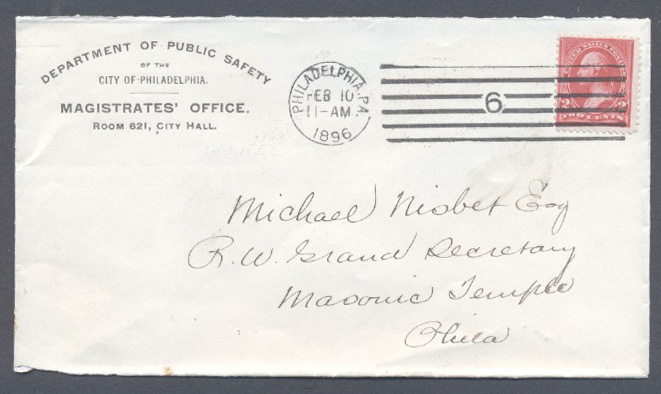 DEPARTMENT OF PUBLIC SAFETY
OF THE
CITY OF PHILADELPHIA.
MAGISTRATES' OFFICE.
ROOM 621, CITY HALL.
PHILADELPHIA, PA.
FEB 10
11-AM
1896
6
2 2
TWO CENTS
Michael Nisbet Esq
R. W. Grand Secretary
Masonic Temple
Phila